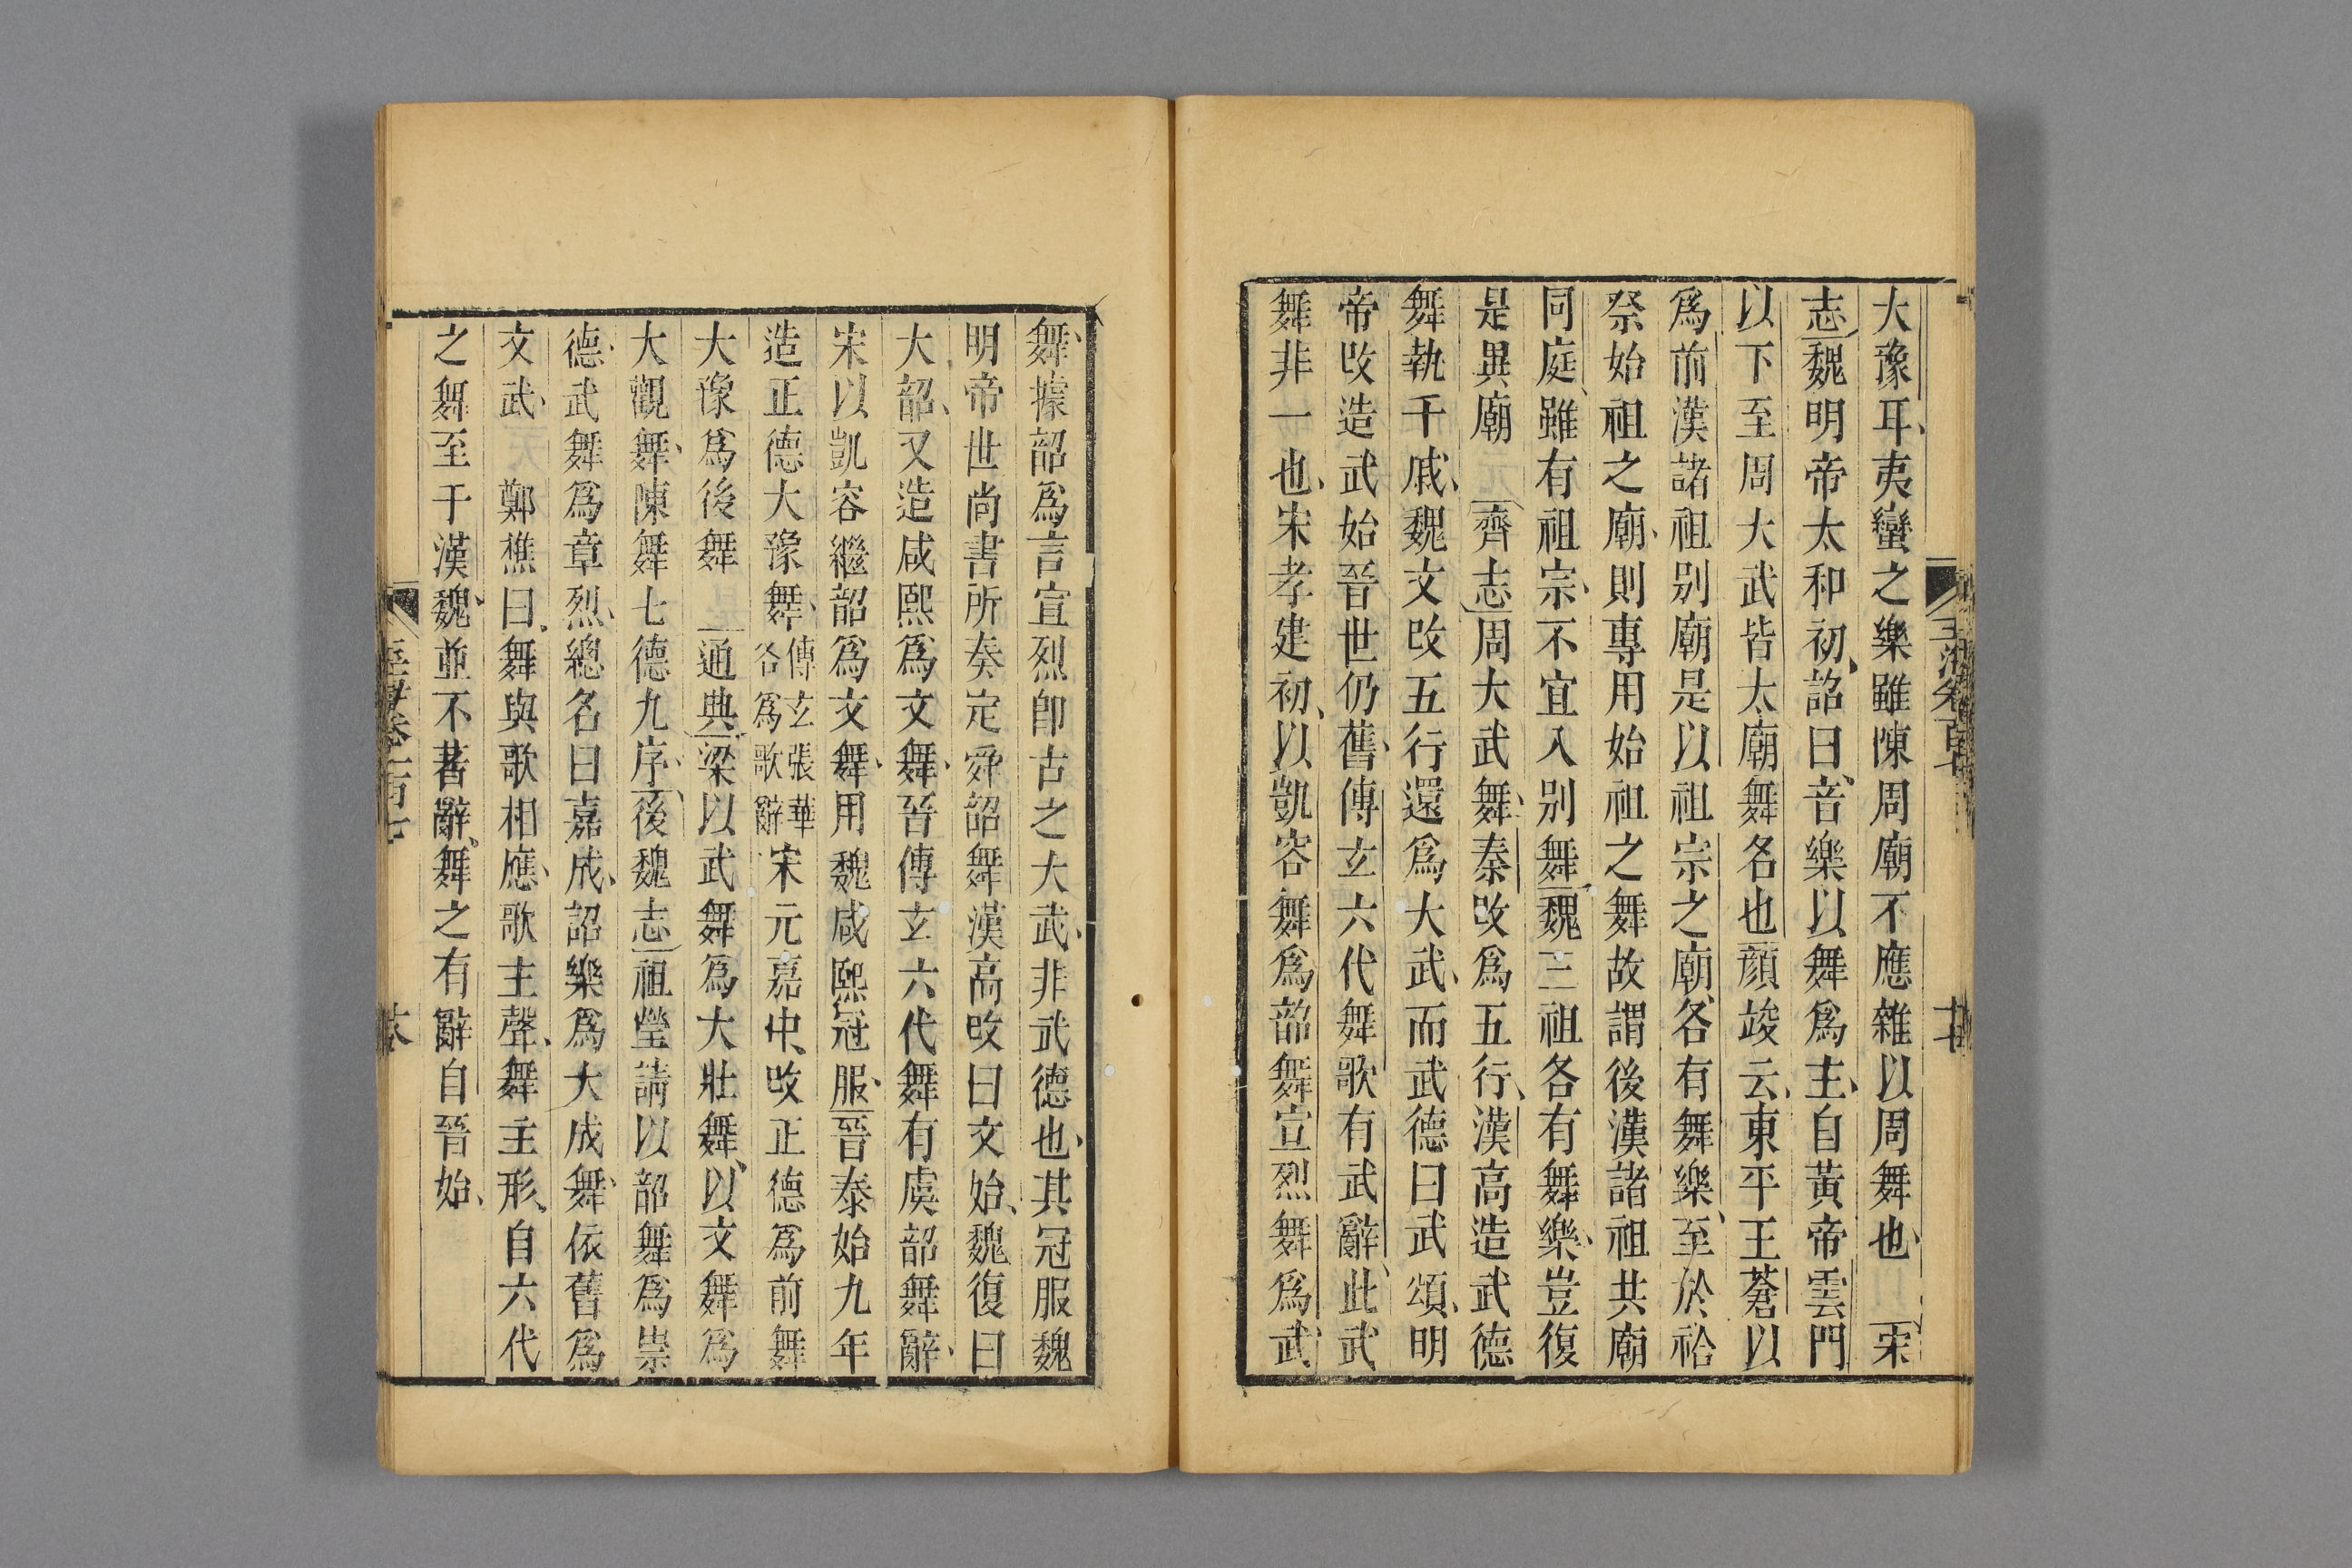 大豫耳夷蠻之樂雖陳周廟不應雜以周舞也宋
志魏明帝太和初詔曰音樂以舞爲主自黃帝雲門
以下至周大武皆太廟舞名也顔竣云東平王蒼以
爲前漢諸祖别廟是以祖宗之廟各有舞樂至於祫
祭始祖之廟則專用始祖之舞故謂後漢諸祖共廟
同庭雖有祖宗不宜入别舞魏三祖各有舞樂豈復
是異廟齊志周大武舞秦改爲五行漢高造武德
舞執干戚魏文改五行還爲大武而武德曰武頌明
帝改造武始晉世仍舊傅玄六代舞歌有武辭此武
舞非一也宋孝建初以凱容舞爲韶舞宣烈舞爲武
舞據韶爲言宣烈卽古之大武非武德也其冠服魏
明帝世尚書所奏定舜韶舞漢高改曰文始魏復曰
大韶又造咸熙爲文舞晉傅玄六代舞有虞韶舞辭
宋以凱容繼韶爲文舞用魏咸熙冠服晉泰始九年
造正德大豫舞傅玄張華各爲歌辭宋元嘉中改正德爲前舞
大豫爲後舞通典梁以武舞爲大壯舞以文舞爲
大觀舞陳舞七德九序後魏志祖瑩請以韶舞爲崇
德武舞爲章烈總名曰嘉成詔樂爲大成舞依舊爲
文武鄭樵曰舞與歌相應歌主聲舞主形自六代
之舞至于漢魏並不著辭舞之有辭自晉始